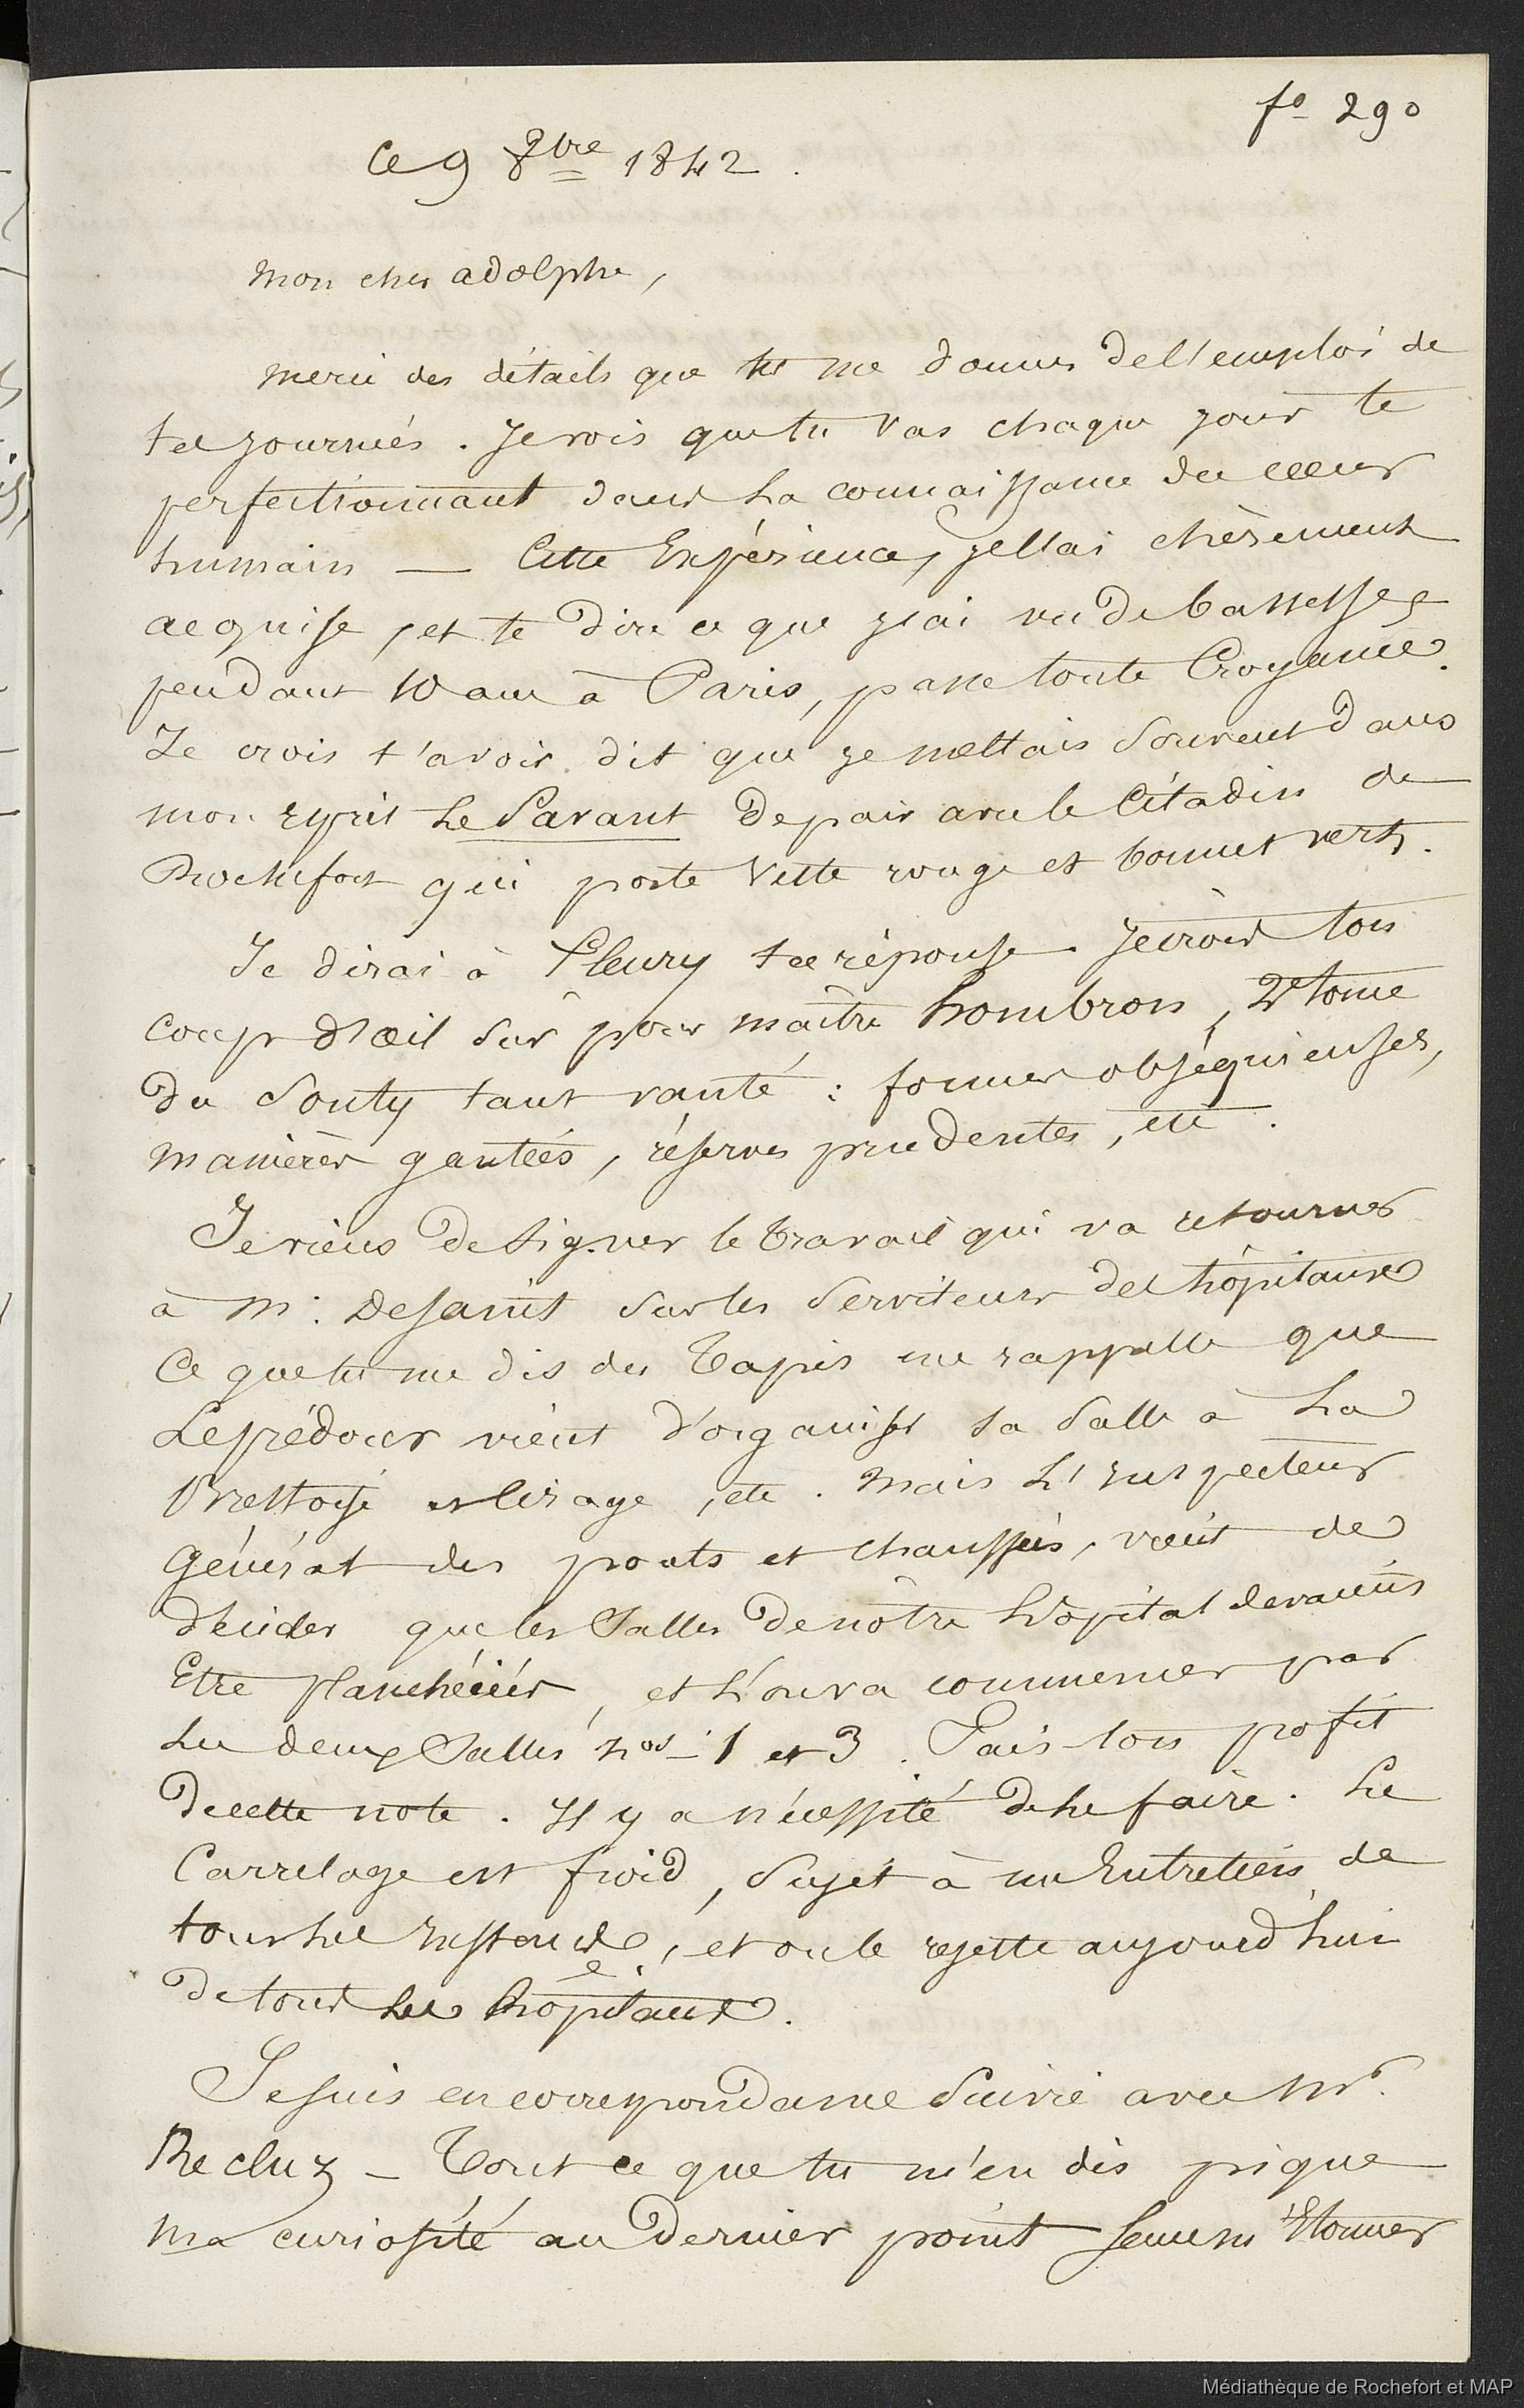 fo 290
Ce 9 8bre 1842.
Mon cher adolphe,
Merci des détails que tu me donnes de l'emploi de
tes journées. Je vois que tu vas chaque jour te
perfectionnant dans la connaissance du cœur
humain — Cette Expérience, je l'ai chèrement
acquise, et te dire ce que j'ai vu de bassesses
pendant 10 ans à Paris, passe toute Croyance.
Je crois t'avoir dit que je mettais Souvent dans
mon Esprit Le Savant de pair avec le Citadin de
Rochefort qui porte Veste rouge et bonnet vert.
Je dirai à Fleury ta réponse. Je crois ton
Coup d'œil Sûr pour maître hombron, 2e tome
du Souty tant vanté : formes obséquieuses,
manières gantées, réserves prudentes, etc.
Je viens de Signer le travail qui va retourner
à M. Desaint Sur les Serviteurs des hôpitaux
Ce que tu me dis des Tapis me rappelle que
Leprédour vient d'organiser sa Salle à La
Brestoise cirage, etc. Mais L'Inspecteur
Général des ponts et chaussées, vient de
décider que les Salles de nôtre hôpital devaient
Etre planchéiées, et L'on va commencer par
Les deux Salles nos 1 et 3. Fais ton profit
de cette note. Il y a nécessité de le faire. Le
Carrelage est froid, Sujet à un Entretien de
tous les Instants, et on le rejette aujourd'hui
de tous Les hôpitaux.
Je suis en correspondance Suivie avec Mr.
Recluz — Tout ce que tu m'en dis pique
Ma curiosité au dernier point Sans m'Etonner